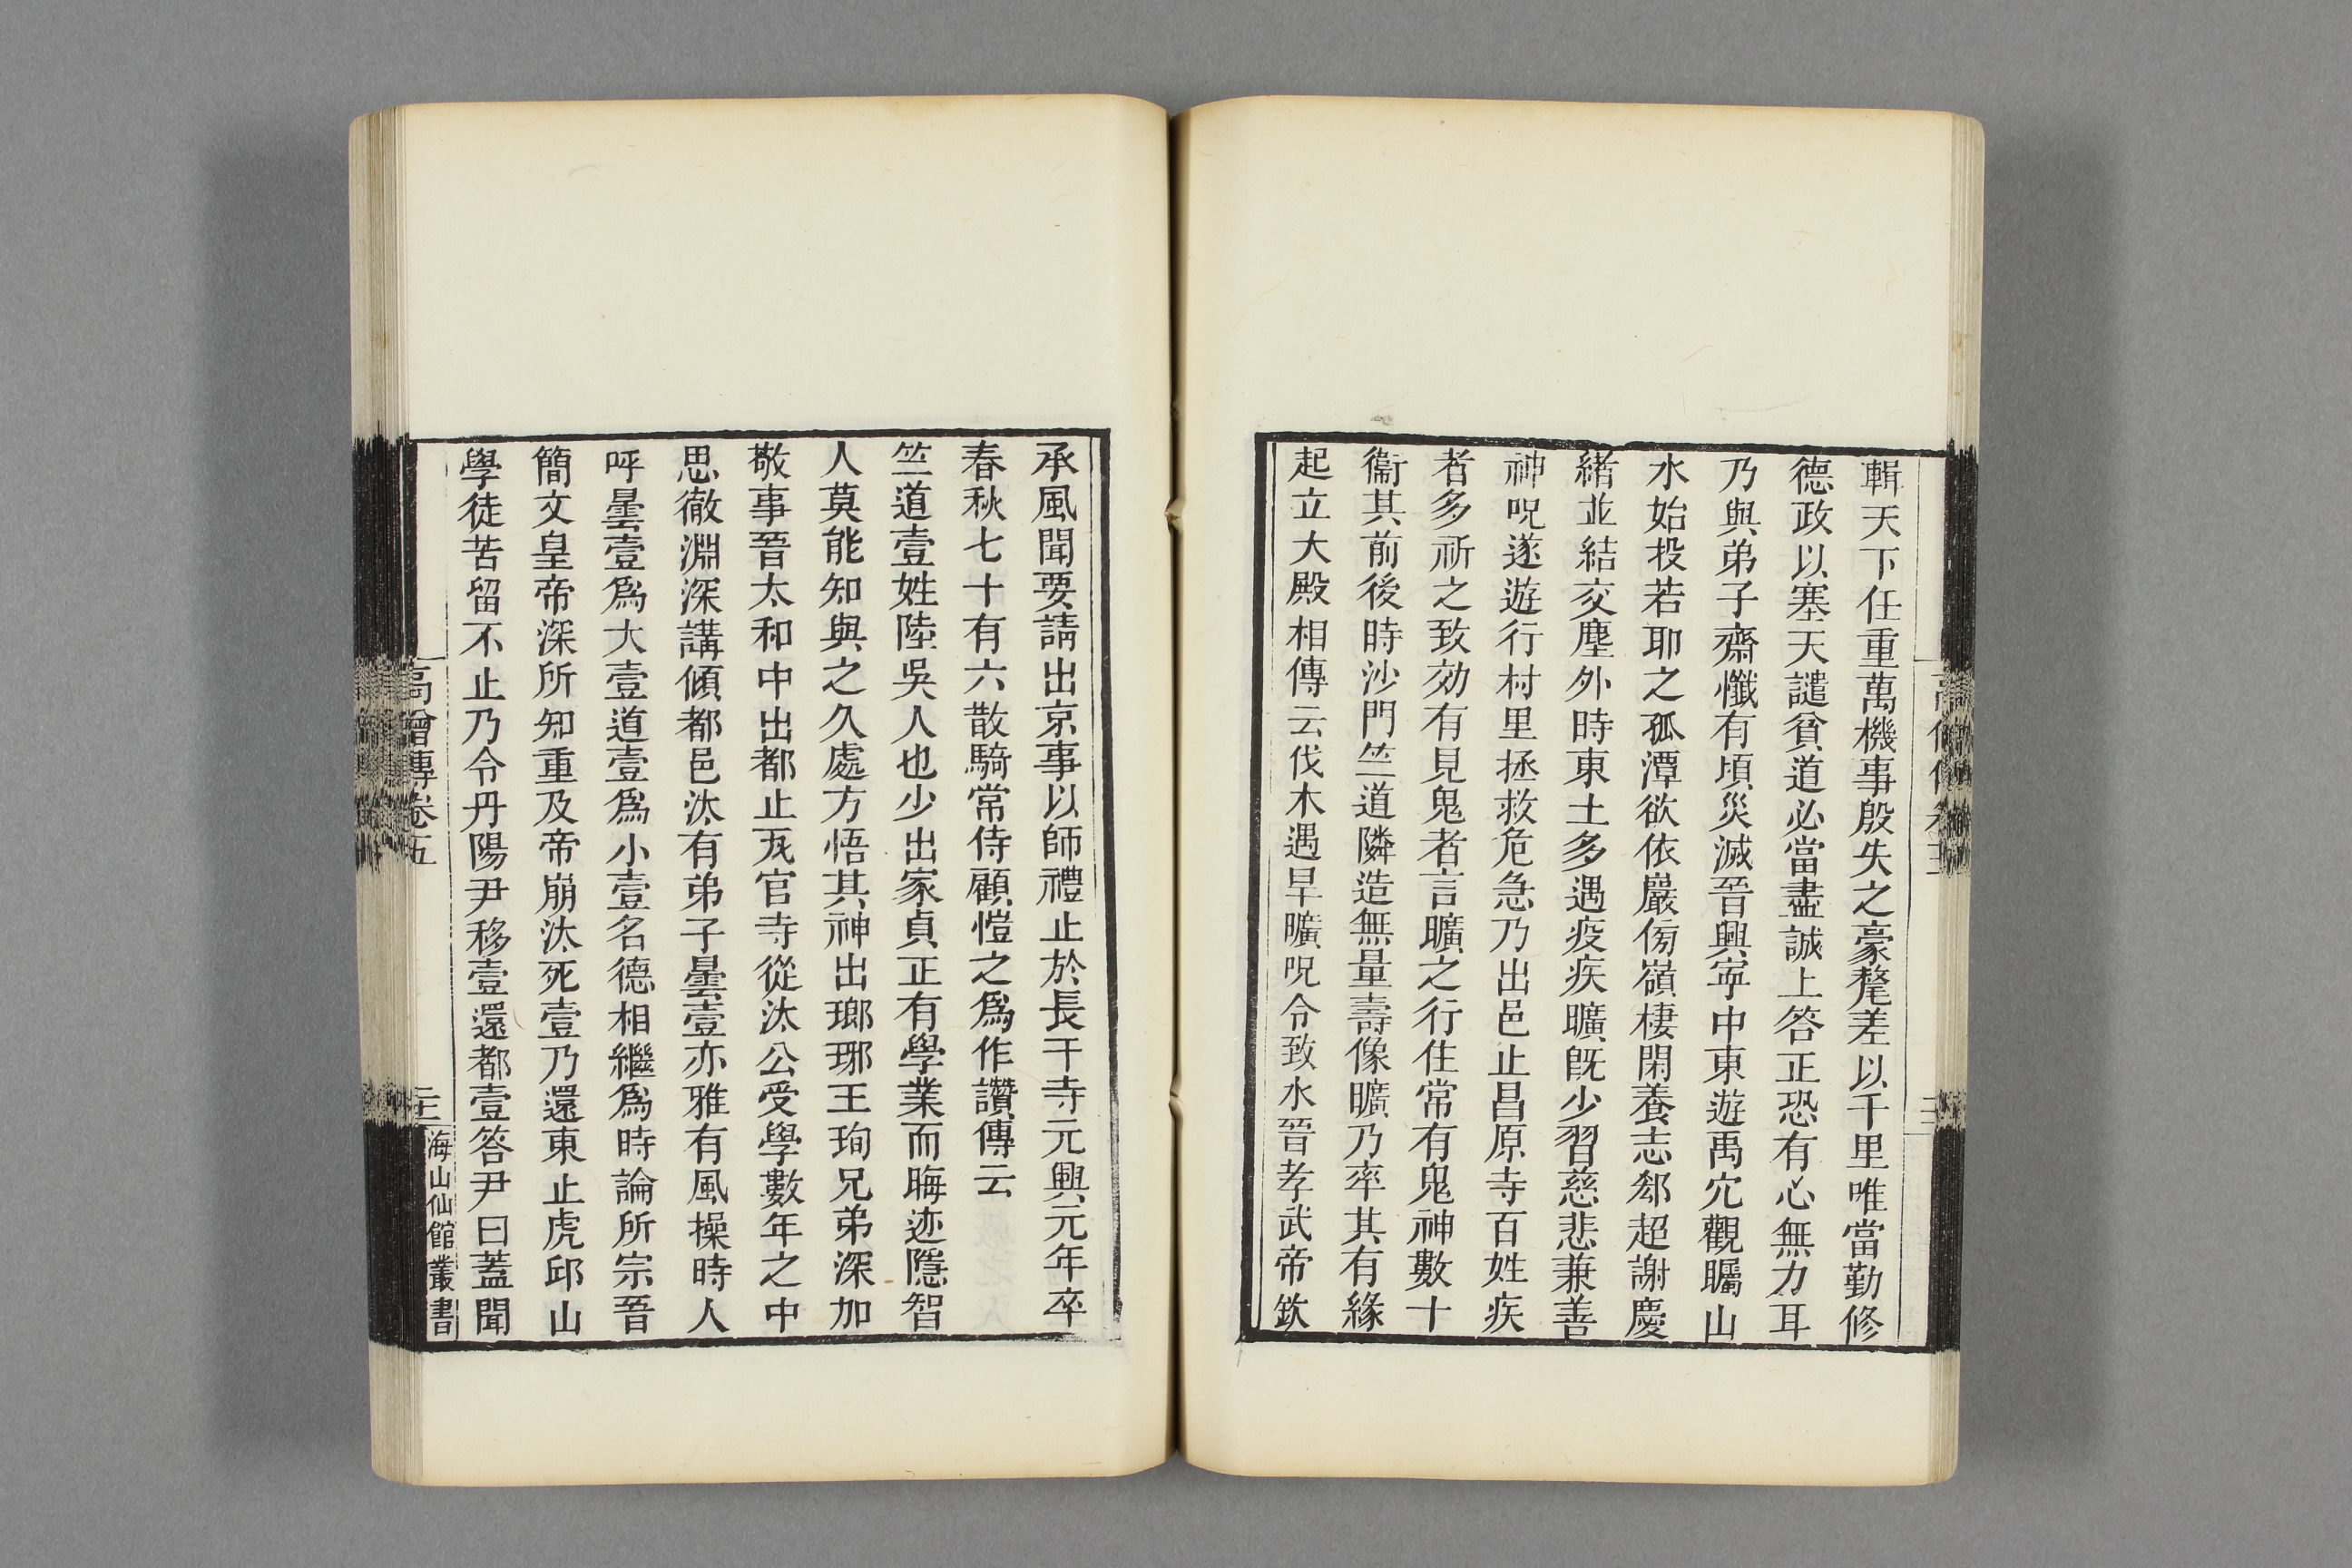 輯天下任重萬機事殷失之豪氂差以千里唯當勤修
德政以塞天譴貧道必當盡誠上答正恐有心無力耳
乃與弟子齋懺有頃災滅晉興寧中東遊禹穴觀矚山
水始投若耶之孤潭欲依巖傍嶺棲閑養志郄超謝慶
緒並結交塵外時東土多遇疫疾曠旣少習慈悲兼善
神呪遂遊行村里拯救危急乃出邑止昌原寺百姓疾
者多祈之致効有見鬼者言曠之行住常有鬼神數十
衞其前後時沙門竺道隣造無量壽像曠乃率其有緣
起立大殿相傳云伐木遇旱曠呪令致水晉孝武帝欽
承風聞要請出京事以師禮止於長干寺元興元年卒
春秋七十有六散騎常侍顧愷之爲作讚傳云
竺道壹姓陸吳人也少出家貞正有學業而晦迹隱智
人莫能知與之久處方悟其神出瑯琊王珣兄弟深加
敬事晉太和中出都止瓦官寺從汰公受學數年之中
思徹淵深講傾都邑汰有弟子曇壹亦雅有風操時人
呼曇壹爲大壹道壹爲小壹名德相繼爲時論所宗晉
簡文皇帝深所知重及帝崩汰死壹乃還東止虎邱山
學徒苦留不止乃令丹陽尹移壹還都壹答尹曰蓋聞
高僧傳卷五
海山仙館叢書